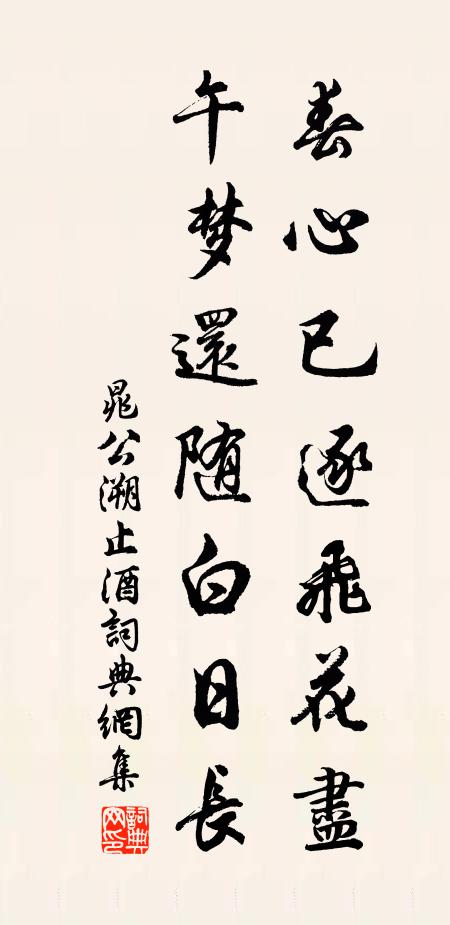 春心已逐飛花盡
午梦還随白日長
晁公溯止酒詞典網集
詞典
网印